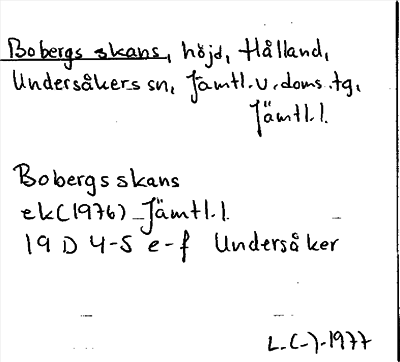 Bobergs skans, höjd, Hålland,
Undersåkers sn, Jämtl. v. doms. tg,
Jämtl. l.
Bobergsskans
ek (1976) Jämtl. l.
19 D 4-5 e-f Undersåker
L.(-)-1977